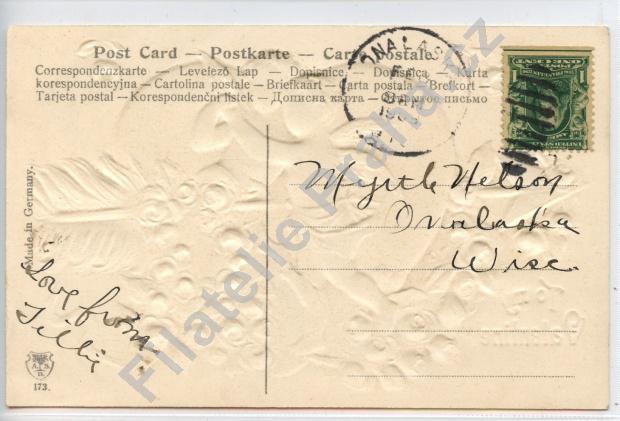 Post Card — Postkarte — Carte Postale
Correspondenzkarte — Levelező Lap — Dopisnice — Dopisnica — Karta
korespondencyjna — Cartolina postale — Briefkaart — Carta postala — Brefkort —
Tarjeta postal — Korespondenční listek — Дописна карта — Открытое письмо
ONALAS
Myrtle Nelson
Onalaska
Wisc.
Made in Germany.
Love from
Tillie
173.
ONE CENT
1
Filatelie Praha.cz